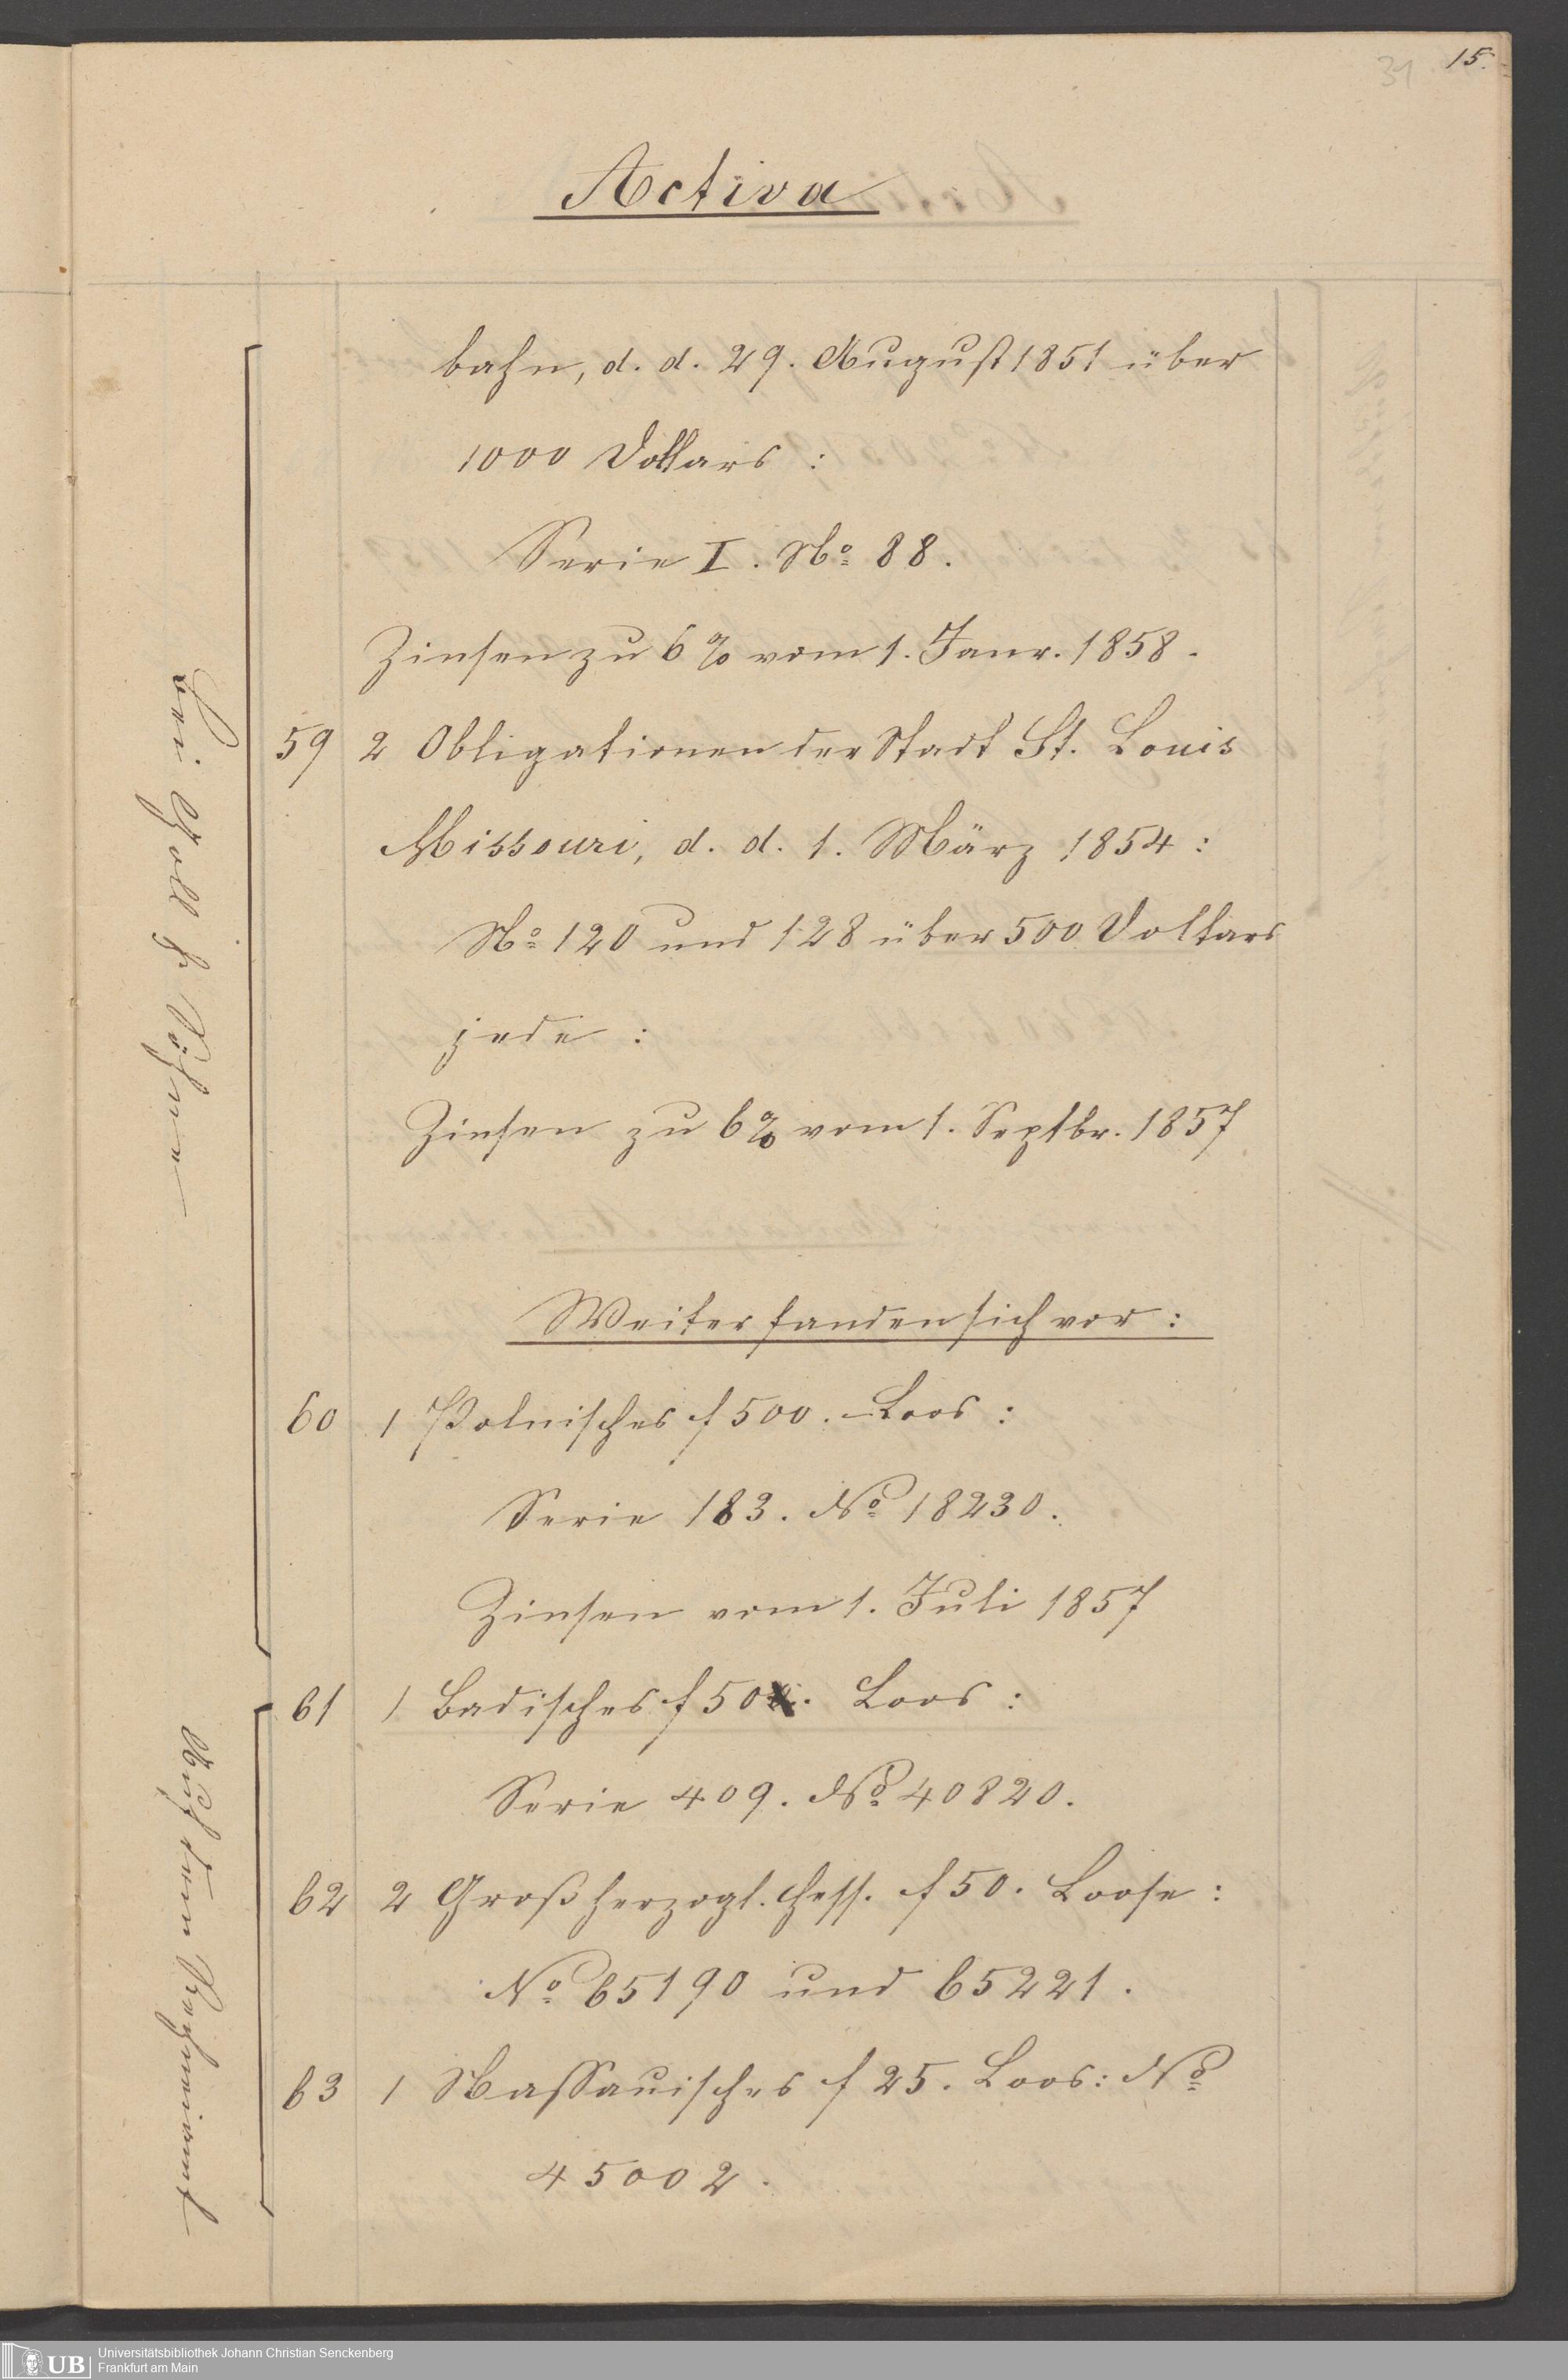 31 15.
Activa
bahn, d. d. 29. August 1851 über
1000 Dollars :
Serie I. No 88.
Zinsen zu 6 % vom 1. Janr. 1858.
59 2 Obligationen der Stadt St. Louis
Missouri, d. d. 1. März 1854 :
No 120 und 128 über 500 Dollars
jede :
Zinsen zu 6% vom 1. Septbr. 1857
Weiter fanden sich vor :
60 1 Polnisches f 500. Loos :
Serie 183. No 18230.
Zinsen vom 1. Juli 1857
61 1 Badisches f 50. Loos :
Serie 409. No 40820.
62 2 Großherzogl. Hess. f 50. Loose :
No 65190 und 65221.
63 1 Nassauisches f 25. Loos: No
45002.
bei Goll & Söhne
Auf dem Rechneiamt
UB
Universitätsbibliothek Johann Christian Senckenberg
Frankfurt am Main